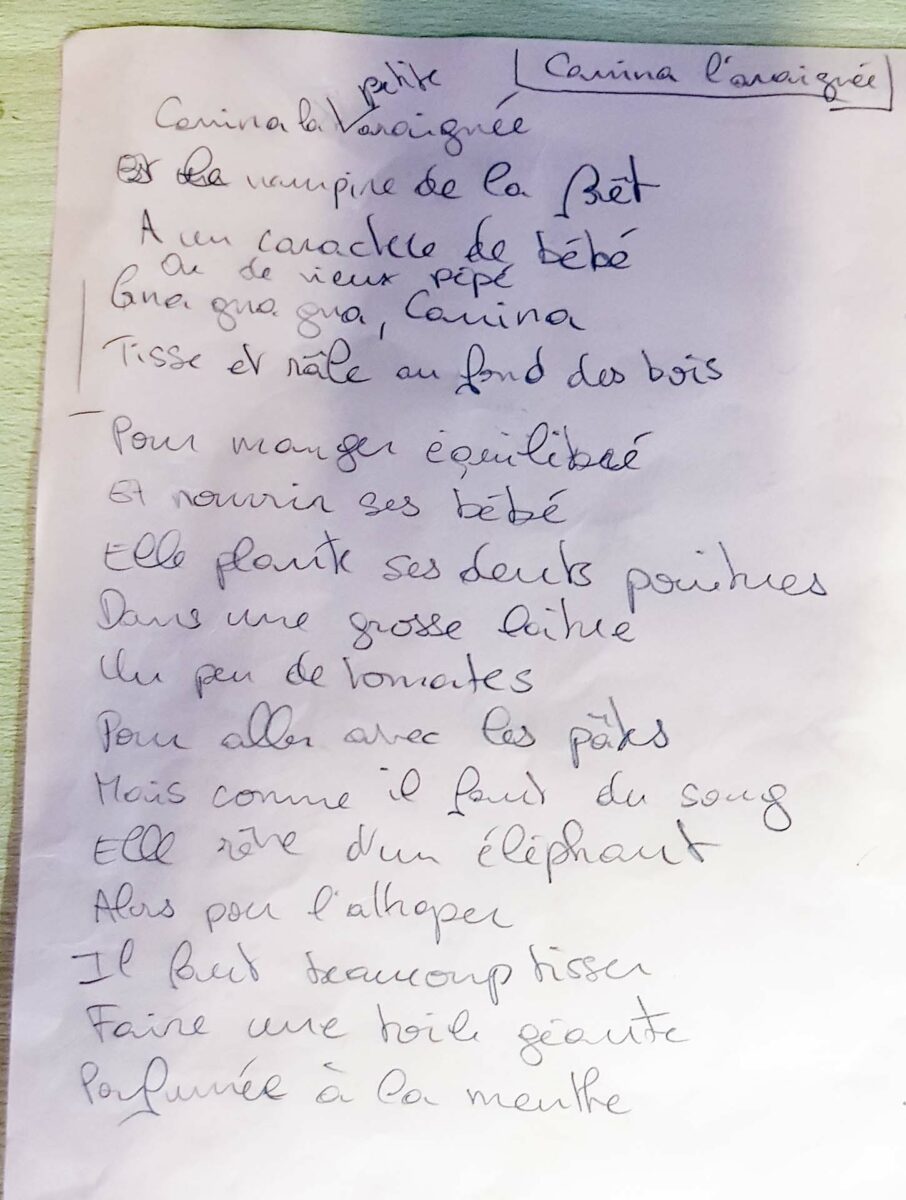 Canina l'araignée
Canina la petite araignée
Est la vampire de la forêt
A un caractère de bébé
Ou de vieux pépé
Gna gna gna, Canina
Tisse et râle au fond des bois
Pour manger équilibré
Et nourrir ses bébé
Elle plante ses dents pointues
Dans une grosse laitue
Un peu de tomates
Pour aller avec les pâtes
Mais comme il faut du sang
Elle rêve d'un éléphant
Alors pour l'attraper
Il faut beaucoup tisser
Faire une toile géante
Parfumée à la menthe